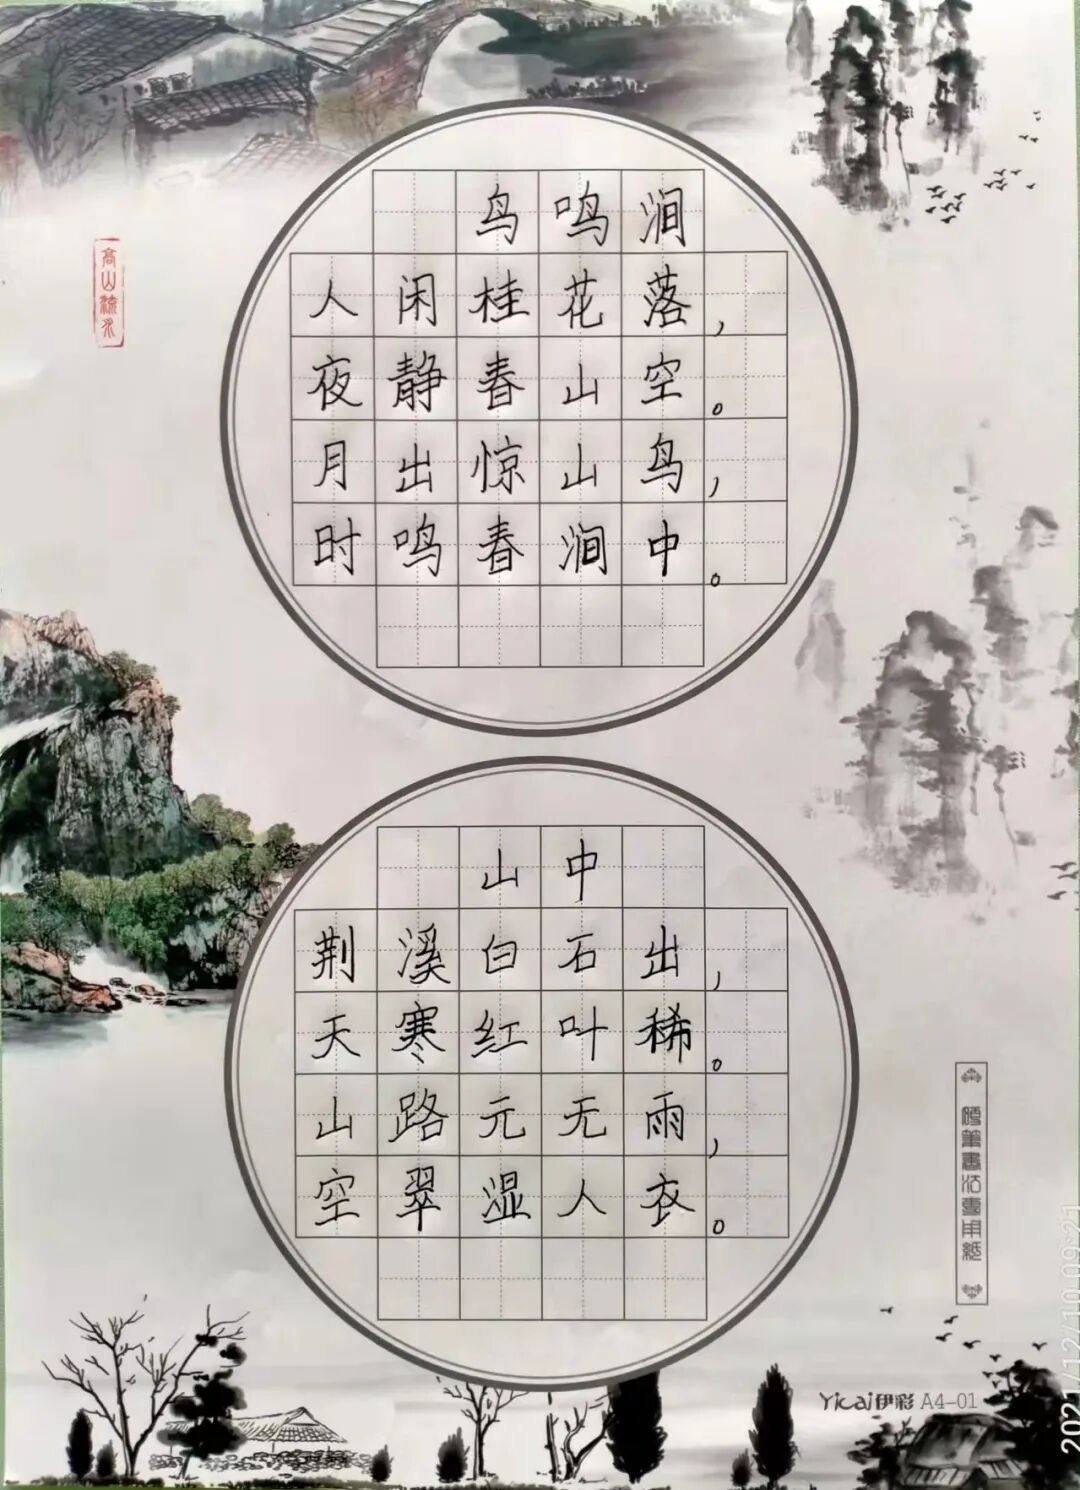 鸟鸣涧
人闲桂花落，
夜静春山空。
月出惊山鸟，
时鸣春涧中。
高山流水
山中
荆溪白石出，
天寒红叶稀。
山路元无雨，
空翠湿人衣。
硬笔书法专用纸
Yicai伊彩 A4-01
2021/12/10 09:21